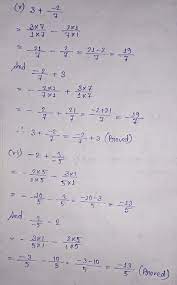 (v) 3 + -2/7
= 3×7/1×7 - 2×1/7×1
= 21/7 - 2/7 = 21-2/7 = 19/7
And
-2/7 + 3
= - 2×1/7×1 + 3×7/1×7
= - 2/7 + 21/7 = -2+21/7 = 19/7
∴ 3 + -2/7 = -2/7 + 3 (Proved)
(vi) -2 + 3/-5
= - 2×5/1×5 - 3×1/5×1
= - 10/5 - 3/5 = -10-3/5 = -13/5
And
-3/5 - 2
= - 3×1/5×1 - 2×5/1×5
= -3/5 - 10/5 = -3-10/5 = -13/5 (Proved)